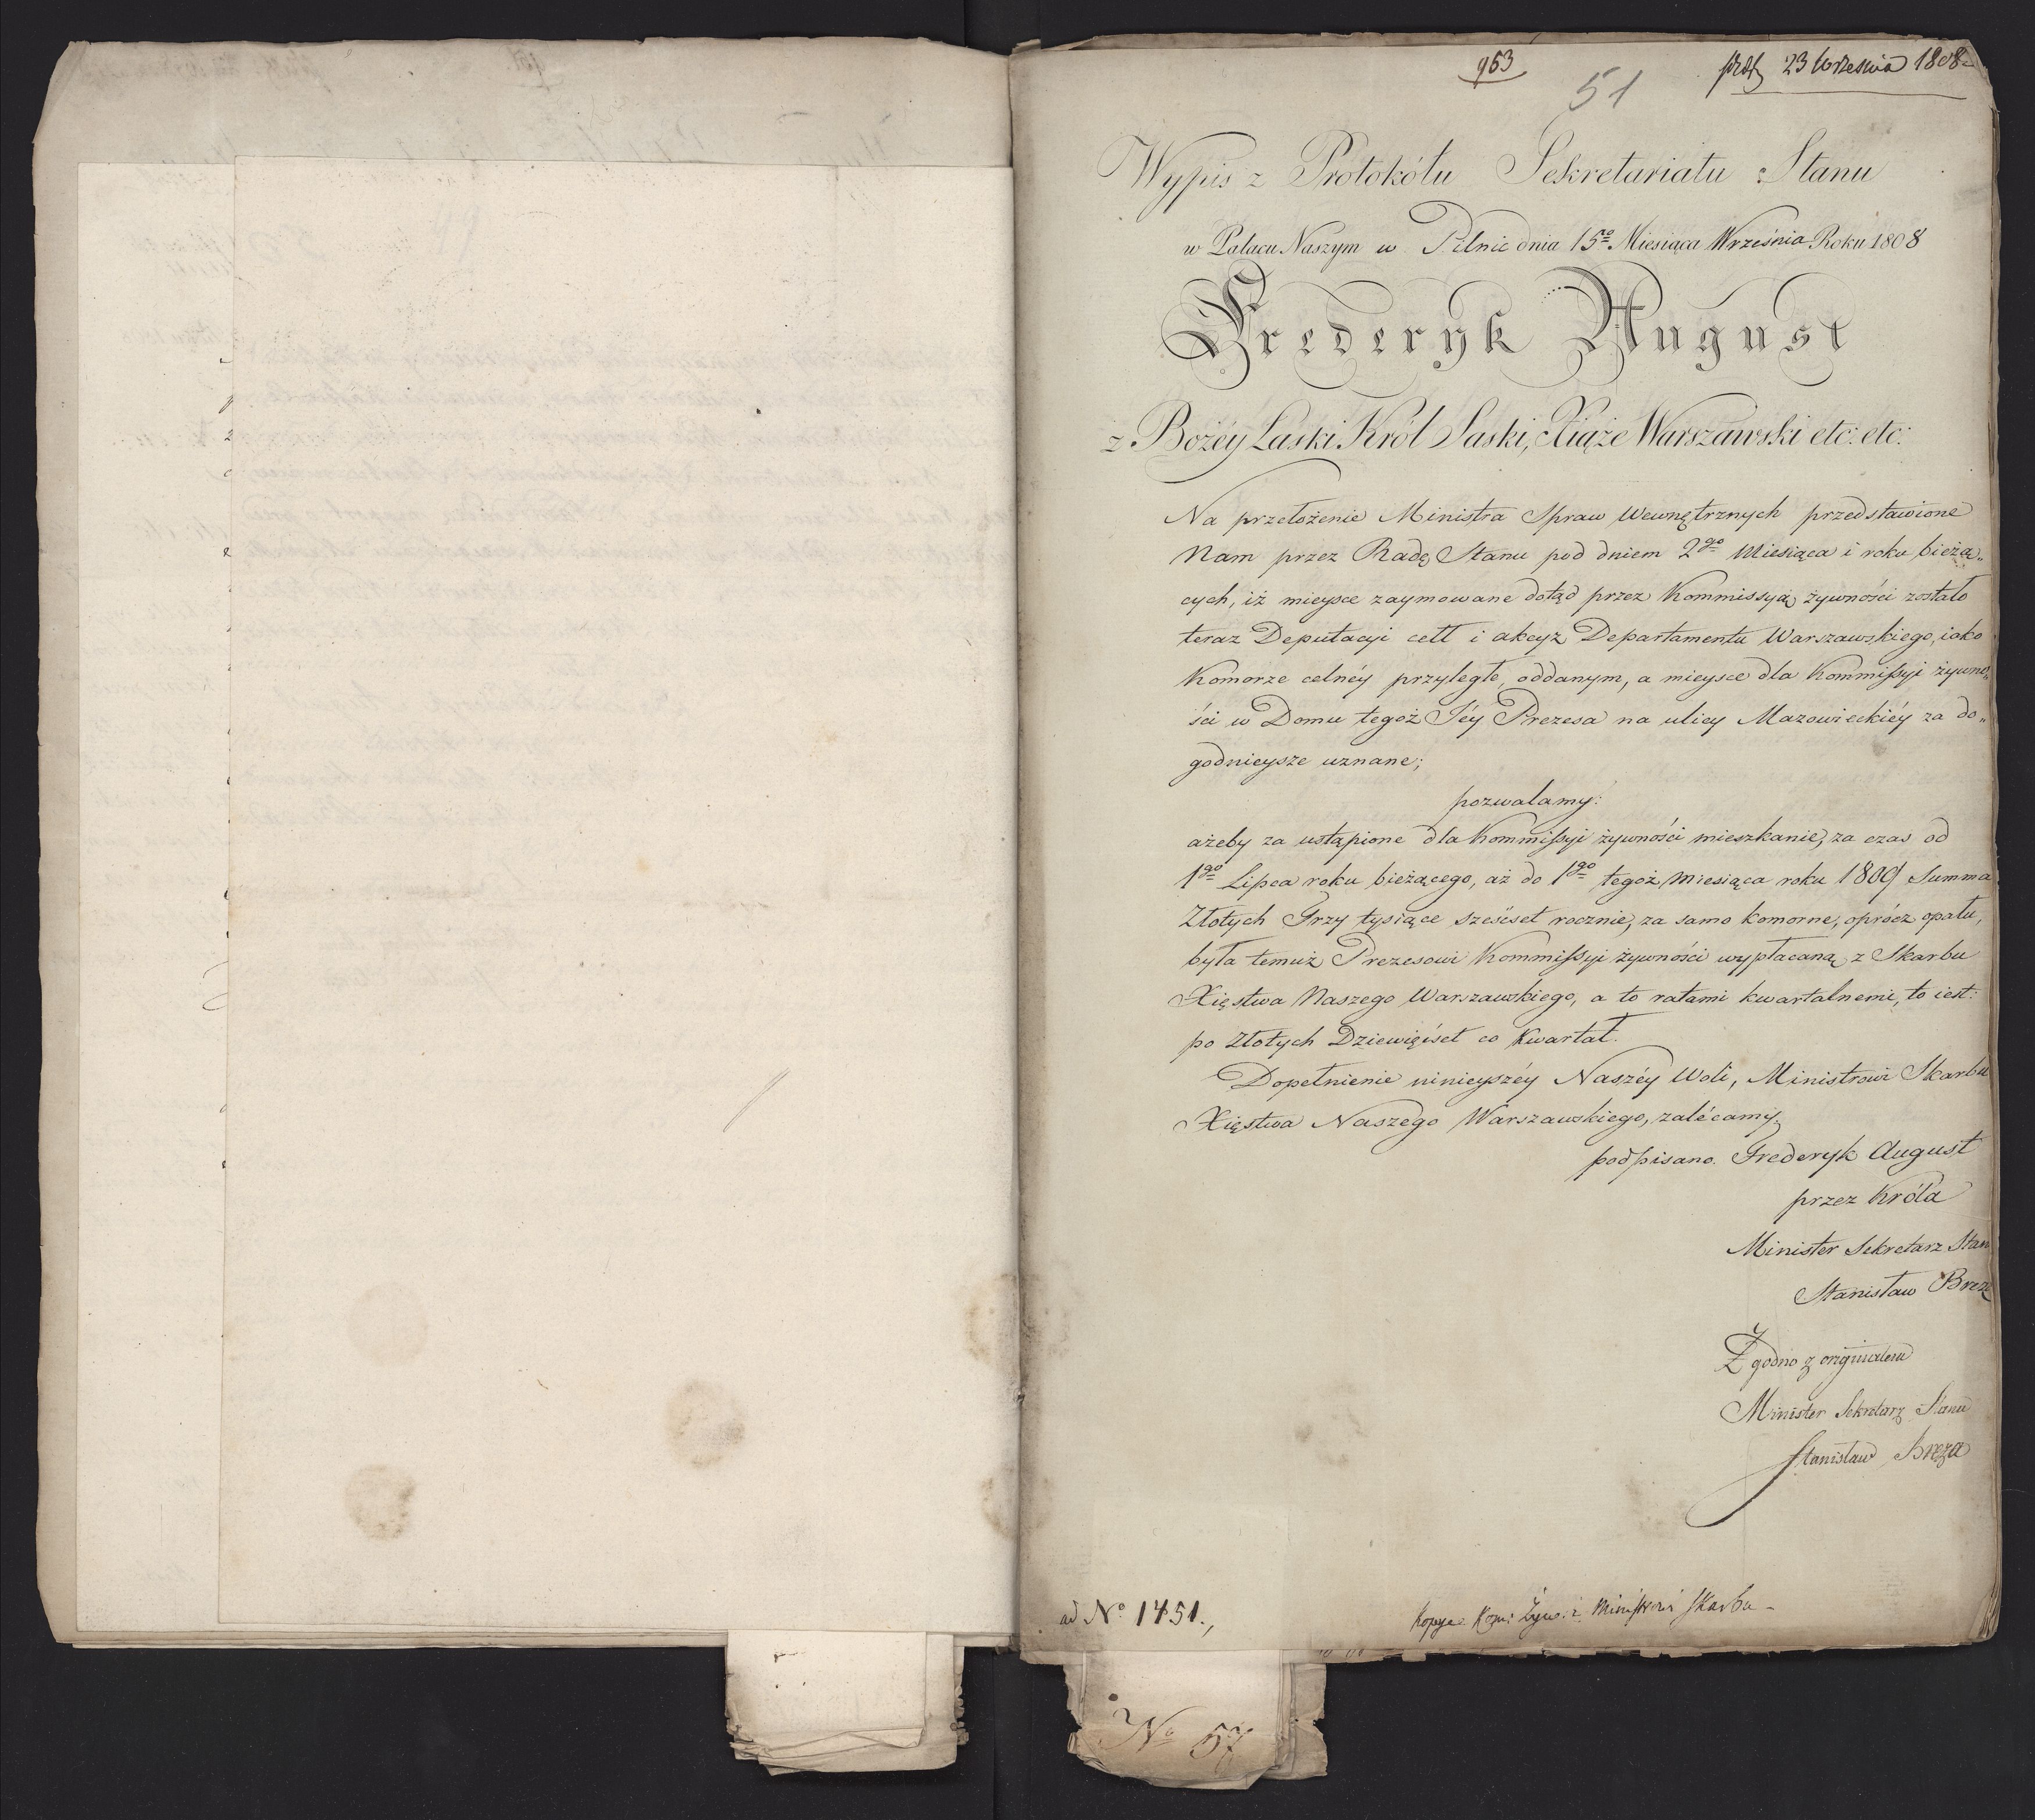 963
51
23 Września 1808
Wypis z Protokółu Sekretariatu Stanu
w Pałacu Naszym w Pilnic dnia 15º Miesiąca Września Roku 1808
Frederyk August
z Bożéy Łaski Król Saski, Xiąże Warszawski etc: etc:
Na przełożenie Ministra Spraw Wewnętrznych przedstawione
Nam przez Radę Stanu pod dniem 2go Miesiąca i roku bieżą„
cych, iż mieysce zaymowane dotąd przez Kommissyią żywności zostało
teraz Deputacyi ceł i akcyz Departamentu Warszawskiego, iako
Komorze celnéy przyległe, oddanym, a mieysce dla Kommissyi żywno„
ści w Domu tegoż Jéy Prezesa na ulicy Mazowieckiéy za do„
godnieysze uznane;
pozwalamy:
ażeby za ustąpione dla Kommissyi żywności mieszkanie, za czas od
1go Lipca roku bieżącego, aż do 1go tegoż Miesiąca roku 1809 Summa
Złotych Trzy tysiące sześćset rocznie, za samo komorne, oprócz opału,
była temuż Prezesowi Kommissyi żywności wypłacaną z Skarbu
Xięstwa Naszego Warszawskiego, a to ratami kwartalnemi, to iest:
po Złotych Dziewięćset co Kwartał.
Dopełnienie ninieyszéy Naszéy Woli, Ministrowi Skarbu
Xięstwa Naszego Warszawskiego, zalécamy.
podpisano. Frederyk August
przez Króla
Minister Sekretarz Stan
Stanisław Brez
Zgodno z originałem
Minister Sekretarz Stanu
Stanisław Breza
ad Nº 1451.,
Kopye: Kom: Żyw: i Ministrowi Skarbu -
Nº 57